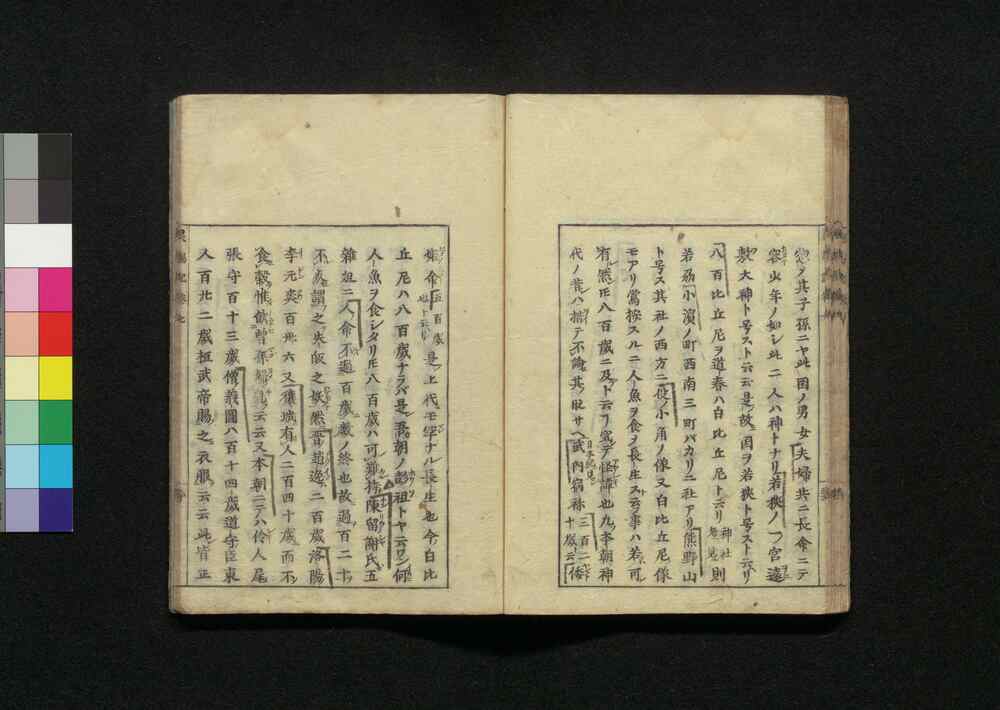 ヲ其子孫ニヤ此国ノ男女夫婦共ニ長命ニテ
容少年ノ如シ此二人ハ神トナリ若狭ノ一宮遠
敷大神ト号スト云云是故国ヲ若狭ト号スト云リ
八百比丘尼ヲ道春ハ白比丘尼ト云リ神社考見則
若狭小濱ノ町西南三町バカリニ社アリ熊野山
ト号ス其社ノ西方ニ役ノ小角ノ像又白比丘尼像
モアリ當按スルニ人魚ヲ食ヲ長生ス云事ハ若可
有然𪜈八百歳ニ及ト云フ寔ニ怪事也本朝神
代ノ昔ハ措テ不論其ノサヘ武内宿祢三百二十歳云倭
姫命五百歳ト云リ是上代モ罕ナル長生也今白比
丘尼ハ八百歳ナラバ是吾朝ノ彭祖トヤ云ワン何
人魚ヲ食シタリ𪜈八百歳ハ可陳留謝氏五
雑組ニ人命不過百歳数ノ終也故過百二十
不謂之失皈之妖然晋趙逸二百歳洛陽
李元爽百卅六又穰城有人二百四十歳而不
食穀惟飲曽孫婦乳云云又本朝ニテハ伶人尾
張守百十三歳僧義圓八百十四歳道守臣東
人百九二歳桓武帝賜之衣服云云此皆正